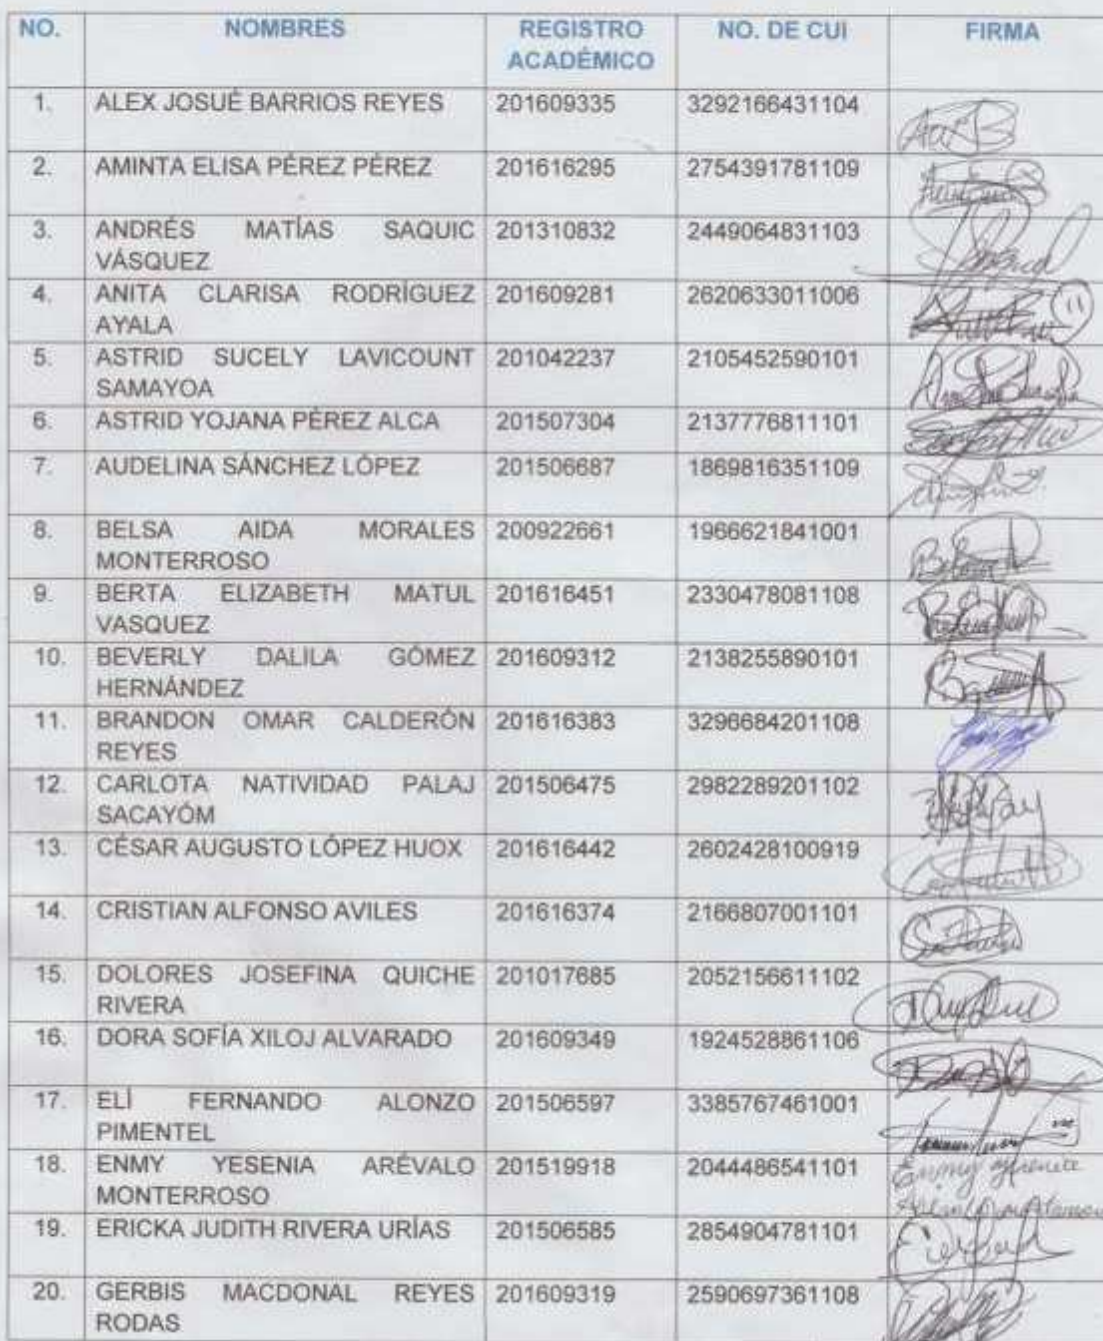 NO. NOMBRES REGISTRO NO. DE CUI FIRMA
ACADÉMICO
1. ALEX JOSUÉ BARRIOS REYES 201609335 3292166431104
2. AMINTA ELISA PÉREZ PÉREZ 201616295 2754391781109
3. ANDRÉS MATÍAS SAQUIC 201310832 2449064831103
VÁSQUEZ
4. ANITA CLARISA RODRÍGUEZ 201609281 2620633011006
AYALA
5. ASTRID SUCELY LAVICOUNT 201042237 2105452590101
SAMAYOA
6. ASTRID YOJANA PÉREZ ALCA 201507304 2137776811101
7. AUDELINA SÁNCHEZ LÓPEZ 201506687 1869816351109
8. BELSA AIDA MORALES 200922661 1966621841001
MONTERROSO
9. BERTA ELIZABETH MATUL 201616451 2330478081108
VASQUEZ
10. BEVERLY DALILA GÓMEZ 201609312 2138255890101
HERNÁNDEZ
11. BRANDON OMAR CALDERÓN 201616383 3296684201108
REYES
12. CARLOTA NATIVIDAD PALAJ 201506475 2982289201102
SACAYÓM
13. CÉSAR AUGUSTO LÓPEZ HUOX 201616442 2602428100919
14. CRISTIAN ALFONSO AVILES 201616374 2166807001101
15. DOLORES JOSEFINA QUICHE 201017685 2052156611102
RIVERA
16. DORA SOFÍA XILOJ ALVARADO 201609349 1924528861106
17. ELÍ FERNANDO ALONZO 201506597 3385767461001
PIMENTEL
18. ENMY YESENIA ARÉVALO 201519918 2044486541101
MONTERROSO
19. ERICKA JUDITH RIVERA URÍAS 201506585 2854904781101
20. GERBIS MACDONAL REYES 201609319 2590697361108
RODAS